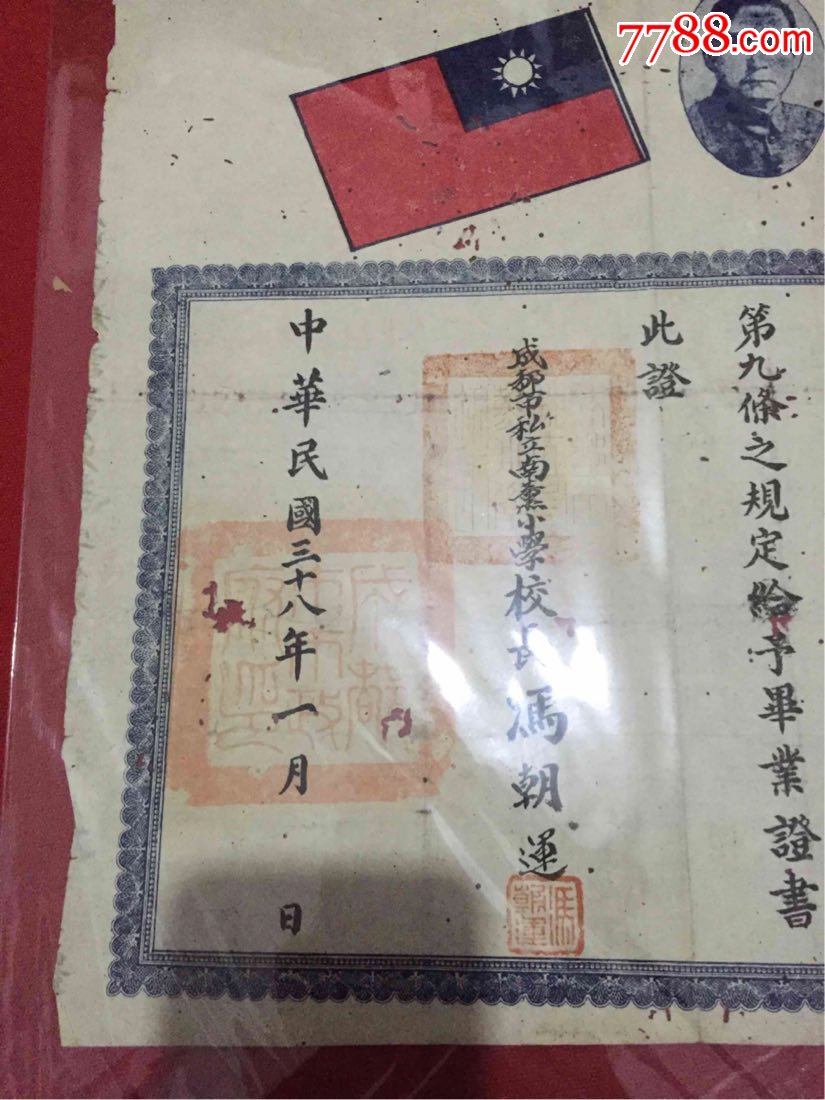 7788.com
第九條之規定給予畢業證書
此證
成都市私立南熏小學校長馮朝運
馮朝運
中華民國三十八年一月 日
成都市政府印